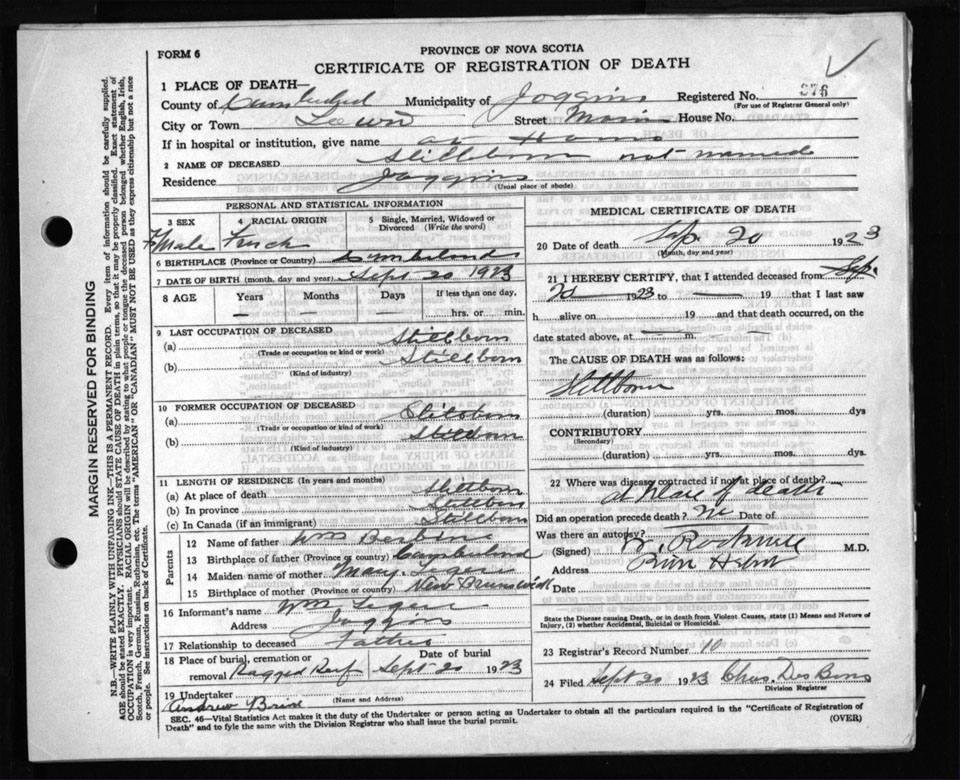 FORM 6
PROVINCE OF NOVA SCOTIA
CERTIFICATE OF REGISTRATION OF DEATH
1 PLACE OF DEATH—
County of Cumberland Municipality of Joggins Registered No. 376
(For use of Registrar General only)
City or Town Street Main House No.
If in hospital or institution, give name at Home
2 NAME OF DECEASED Stillborn not named
Residence Joggins
(Usual place of abode)
PERSONAL AND STATISTICAL INFORMATION
3 SEX 4 RACIAL ORIGIN 5 Single, Married, Widowed or
Divorced (Write the word)
FMale French
6 BIRTHPLACE (Province or Country) Cumberland
7 DATE OF BIRTH (month, day and year) Sept 20 1923
8 AGE Years Months Days If less than one day,
— — — hrs. or min.
9 LAST OCCUPATION OF DECEASED
(a) Stillborn
(Trade or occupation or kind of work)
(b) Stillborn
(Kind of industry)
10 FORMER OCCUPATION OF DECEASED
(a) Stillborn
(Trade or occupation or kind of work)
(b) Stillborn
(Kind of industry)
11 LENGTH OF RESIDENCE (In years and months)
(a) At place of death Stillborn
(b) In province Stillborn
(c) In Canada (if an immigrant) Stillborn
Parents
12 Name of father Wm
13 Birthplace of father (Province or country) Cumberland
14 Maiden name of mother Mary Legere
15 Birthplace of mother (Province or country) New Brunswick
16 Informant's name Wm Legere
Address Joggins
17 Relationship to deceased Father
18 Place of burial, cremation or
removal Ragged Reef Sept 20 1923
19 Undertaker (Name and Address)
Andrew
MEDICAL CERTIFICATE OF DEATH
20 Date of death Sep. 20 1923
(Month, day and year)
21 I HEREBY CERTIFY, that I attended deceased from Sep.
20 1923 to — 19 that I last saw
h alive on 19 and that death occurred, on the
date stated above, at — m.
The CAUSE OF DEATH was as follows:
Stillborn
(duration) yrs. mos. dys
CONTRIBUTORY
(Secondary)
(duration) yrs. mos. dys.
22 Where was disease contracted if not at place of death?
at place of death
Did an operation precede death? No Date of
Was there an autopsy?
(Signed) Rockwell M.D.
(Address) River Hebert
Date
State the Disease causing Death, or in death from Violent Causes, state (1) Means and Nature of
Injury, (2) whether Accidental, Suicidal or Homicidal.
23 Registrar's Record Number 10
24 Filed Sept 20 1923 Chas. Des Bens
Division Registrar
SEC. 46—Vital Statistics Act makes it the duty of the Undertaker or person acting as Undertaker to obtain all the particulars required in the "Certificate of Registration of
Death" and to fyle the same with the Division Registrar who shall issue the burial permit. (OVER)
MARGIN RESERVED FOR BINDING
N.B.—WRITE PLAINLY WITH UNFADING INK—THIS IS A PERMANENT RECORD. Every item of information should be carefully supplied.
AGE should be stated EXACTLY. PHYSICIANS should STATE CAUSE OF DEATH in plain terms, so that it may be properly classified. Exact statement of
OCCUPATION is very important. RACIAL ORIGIN will be described by stating to what people or tongue the deceased person belonged whether English, Irish,
Scotch, French, German, Russian, Ruthenian, etc. The terms "AMERICAN" OR "CANADIAN" MUST NOT BE USED as they express citizenship but not a race
or people. See instructions on back of Certificate.